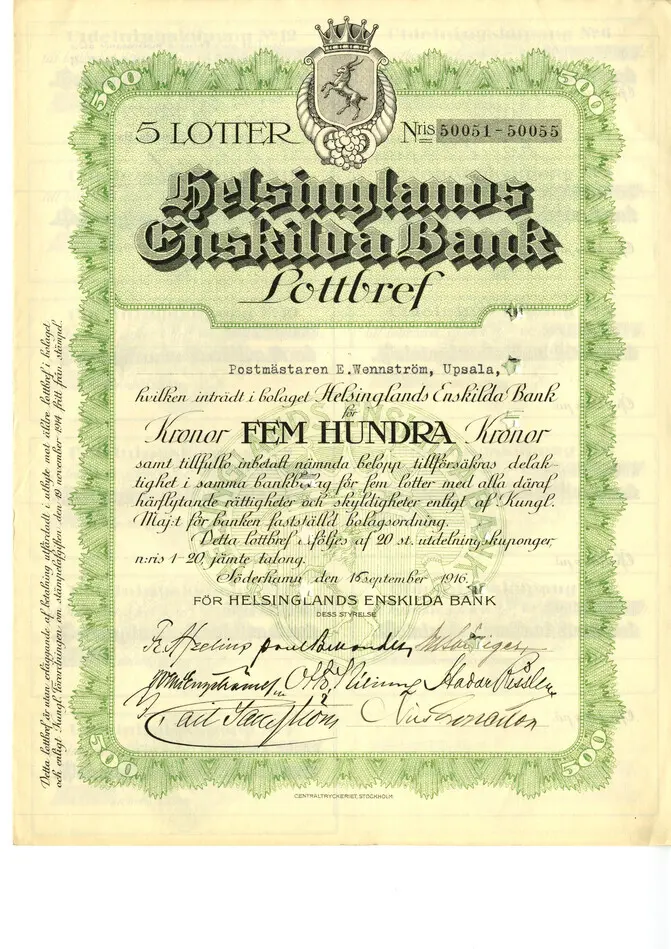 500
500
5 LOTTER
Nris 50051 - 50055
Helsinglands
Enskilda Bank
Lottbref
Postmästaren E.Wennström, Upsala,
hvilken inträdt i bolaget Helsinglands Enskilda Bank
för
Kronor FEM HUNDRA Kronor
samt tillfullo inbetalt nämnda belopp tillförsäkras delak-
tighet i samma bankbolag för fem lotter med alla däraf
härflytande rättigheter och skyldigheter enligt af Kungl.
Maj:t för banken fastställd bolagsordning.
Detta lottbref åtföljes af 20 st. utdelningskuponger,
n:ris 1-20, jämte talong.
Söderhamn den 16 september 1916.
FÖR HELSINGLANDS ENSKILDA BANK
DESS STYRELSE
500
500
CENTRALTRYCKERIET, STOCKHOLM
Detta lottbref är utan erläggande af betalning utfärdadt i utbyte mot äldre lottbref i bolaget
och enligt Kungl. förordningen om stämpelafgiften den 19 november 1914 fritt från stämpel.